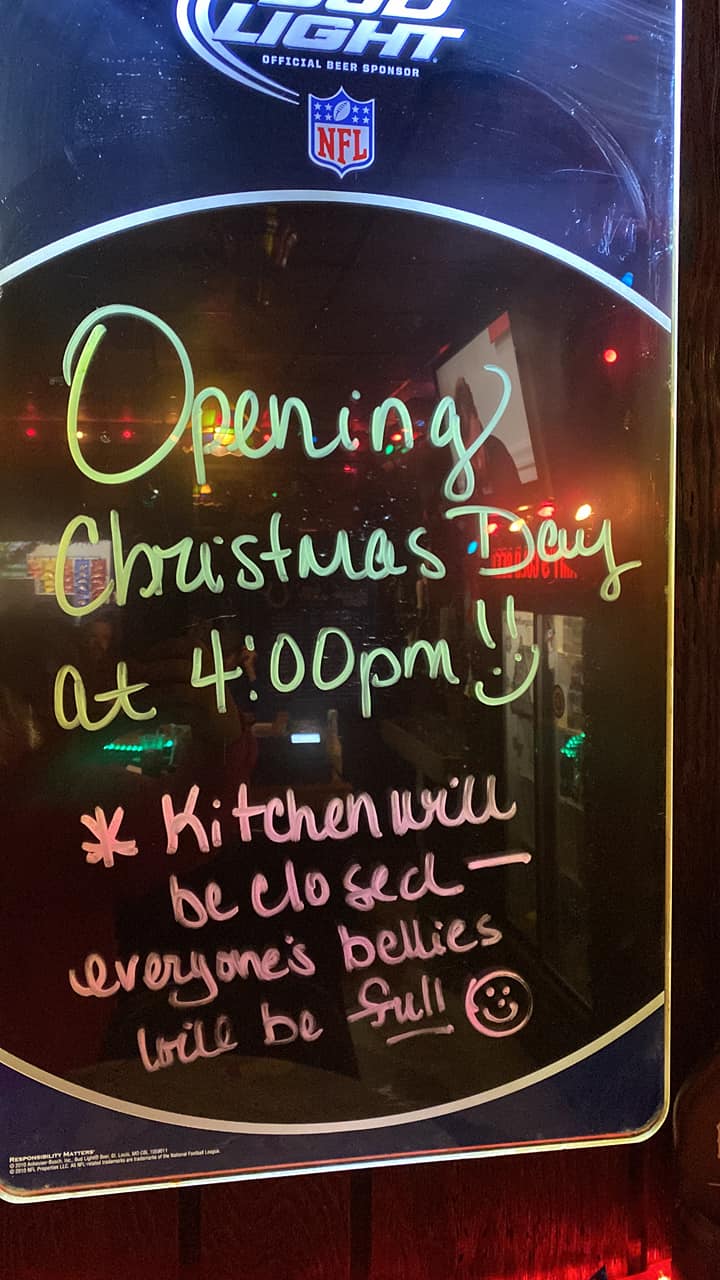 BUD
LIGHT
OFFICIAL BEER SPONSOR
NFL
Opening
Christmas Day
at 4:00pm!!
* Kitchen will
be closed —
everyone's bellies
will be full
RESPONSIBILITY MATTERS